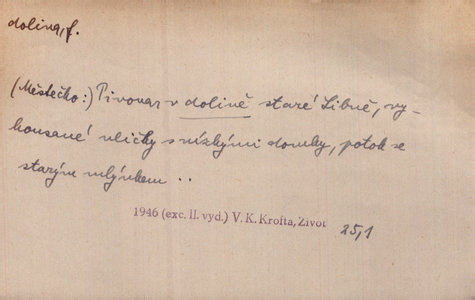 dolina, f.
(Městečko:) Pivovar v dolině staré Libně, vy-
kousané uličky s nízkými domky, potok se
starým mlýnkem ..
1946 (exc. II. vyd.) V. K. Krofta, Život 25,1